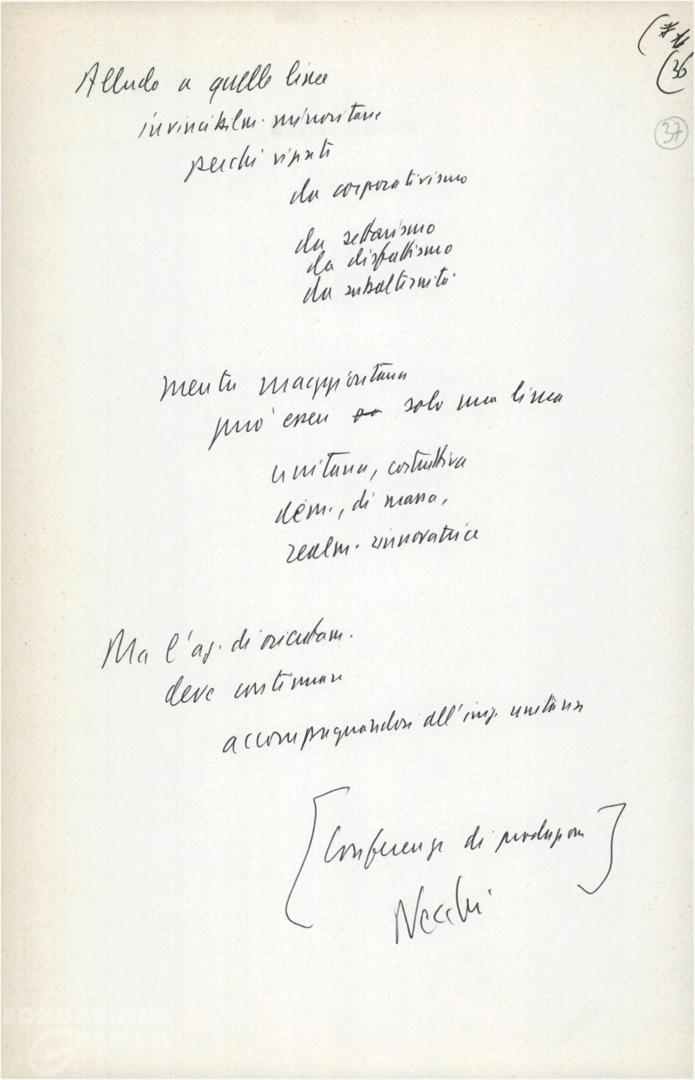 (36
37
Alludo a quelle linee
invincibilm. minoritarie
perché viziate
da corporativismo
da settarismo
da disfattismo
da subalternità
mentre maggioritaria
può essere solo una linea
unitaria, costruttiva
dem., di massa,
realm. rinnovatrice
Ma l'az. di orientam.
deve continuare
accompagnandosi all'imp. unitario
[Conferenze di produzione]
Necchi
FONDAZIONE
GRAMSCI